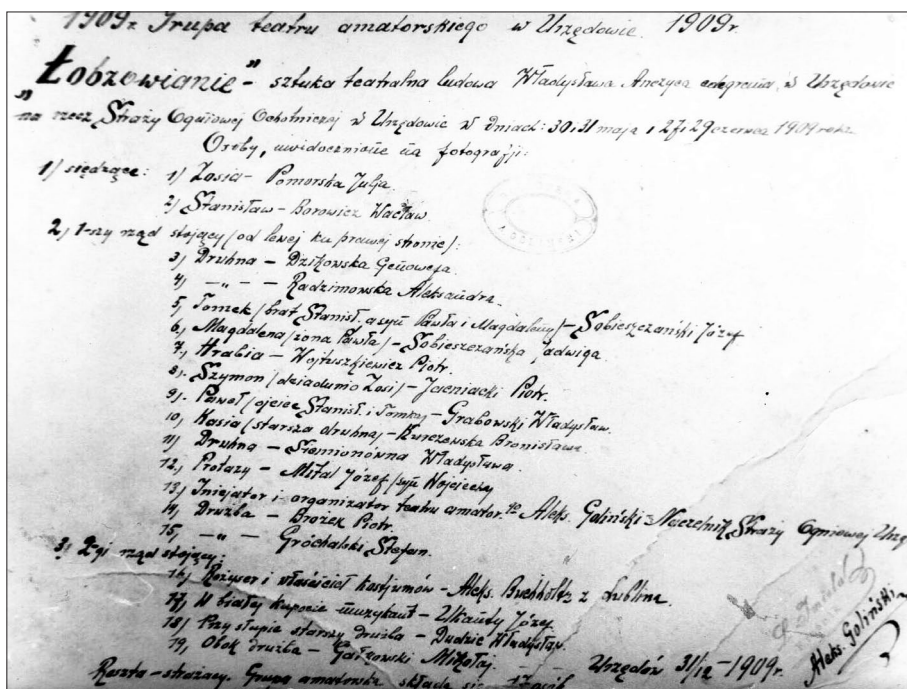 1909 r. Trupa teatru amatorskiego w Urzędowie. 1909 r.
"Łobzowianie" - sztuka teatralna ludowa Władysława Anczyca odegrana w Urzędowie
na rzecz Straży Ogniowej Ochotniczej w Urzędowie w dniach: 30 i 31 maja i 27 i 29 czerwca 1909 roku
Osoby, uwidocznione na fotografji:
1/ siedzące: 1) Zosia - Pomorska Julja.
2) Stanisław - Borowicz Wacław.
2) 1-szy rząd stojący (od lewej ku prawej stronie):
3) Druhna - Dzikowska Genowefa.
4) — " — - Radzimowska Aleksandra.
5) Tomek (brat Stanisł. a syn Pawła i Magdaleny) - Sobieszczański Józef
6) Magdalena (żona Pawła) - Sobieszczańska Jadwiga.
7) Hrabia - Wojtuszkiewicz Piotr.
8) Szymon (dziadunio Zosi) - Jasieniacki Piotr.
9) Paweł (ojciec Stanisł. i Tomka) - Grabowski Władysław.
10) Kasia (starsza druhna) - Kurczowska Bronisława.
11) Druhna - Siemionówna Władysława.
12) Protazy - Mital Józef (syn Wojciecha)
13) Inicjator i organizator teatru amator.go Aleks. Goliński - Naczelnik Straży Ogniowej Urzęd
14) Drużba - Brożek Piotr.
15) — " — - Gróchalski Stefan.
3) 2-gi rząd stojący:
16) Reżyser i właściciel kostjumów - Aleks. Buchholtz z Lublina.
17) W białej kapocie muzykant - Ukauty Józef.
18) Przy słupie starszy drużba - Dudzic Władysław.
19) Obok drużba - Gałkowski Mikołaj.
Urzędów 31/12 - 1909 r.
Aleks. Goliński
Reszta - strażacy. Grupa amatorska składa się 17 osób